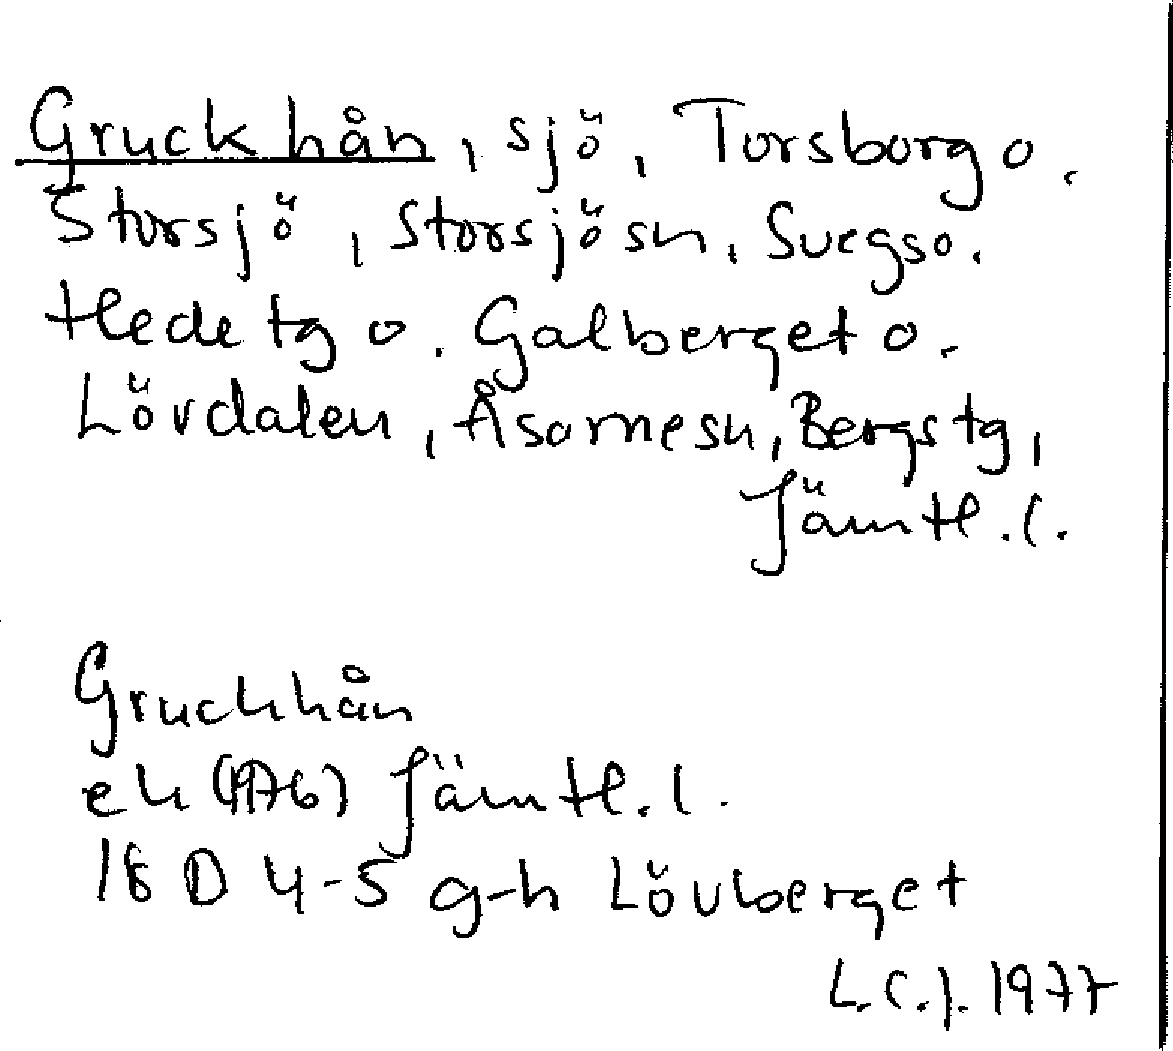 Gruckhån, sjö, Torsborg o.
Storsjö, Storsjösn, Svegs o.
Hede tg o. Galberget o.
Lövdalen, Åsarnesn, Bergs tg,
Jämtl. l.
Gruckhån
ek (1976) Jämtl. l.
18 D 4-5 g-h Lövberget
L.C.J. 1977